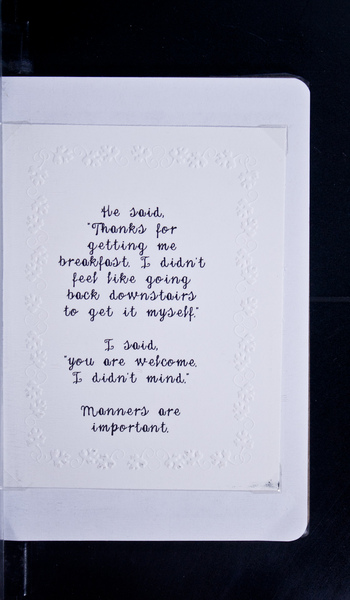 He said,
"Thanks for
getting me
breakfast. I didn't
feel like going
back downstairs
to get it myself."
I said,
"you are welcome.
I didn't mind."
Manners are
important.